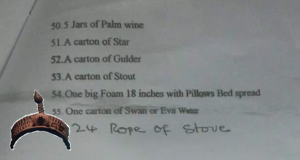 50.5 Jars of Palm wine
51.A carton of Star
52.A carton of Gulder
53.A carton of Stout
54.One big Foam 18 inches with Pillows Bed spread
55. One carton of Swan or Eva Water
24 Rope of Stove